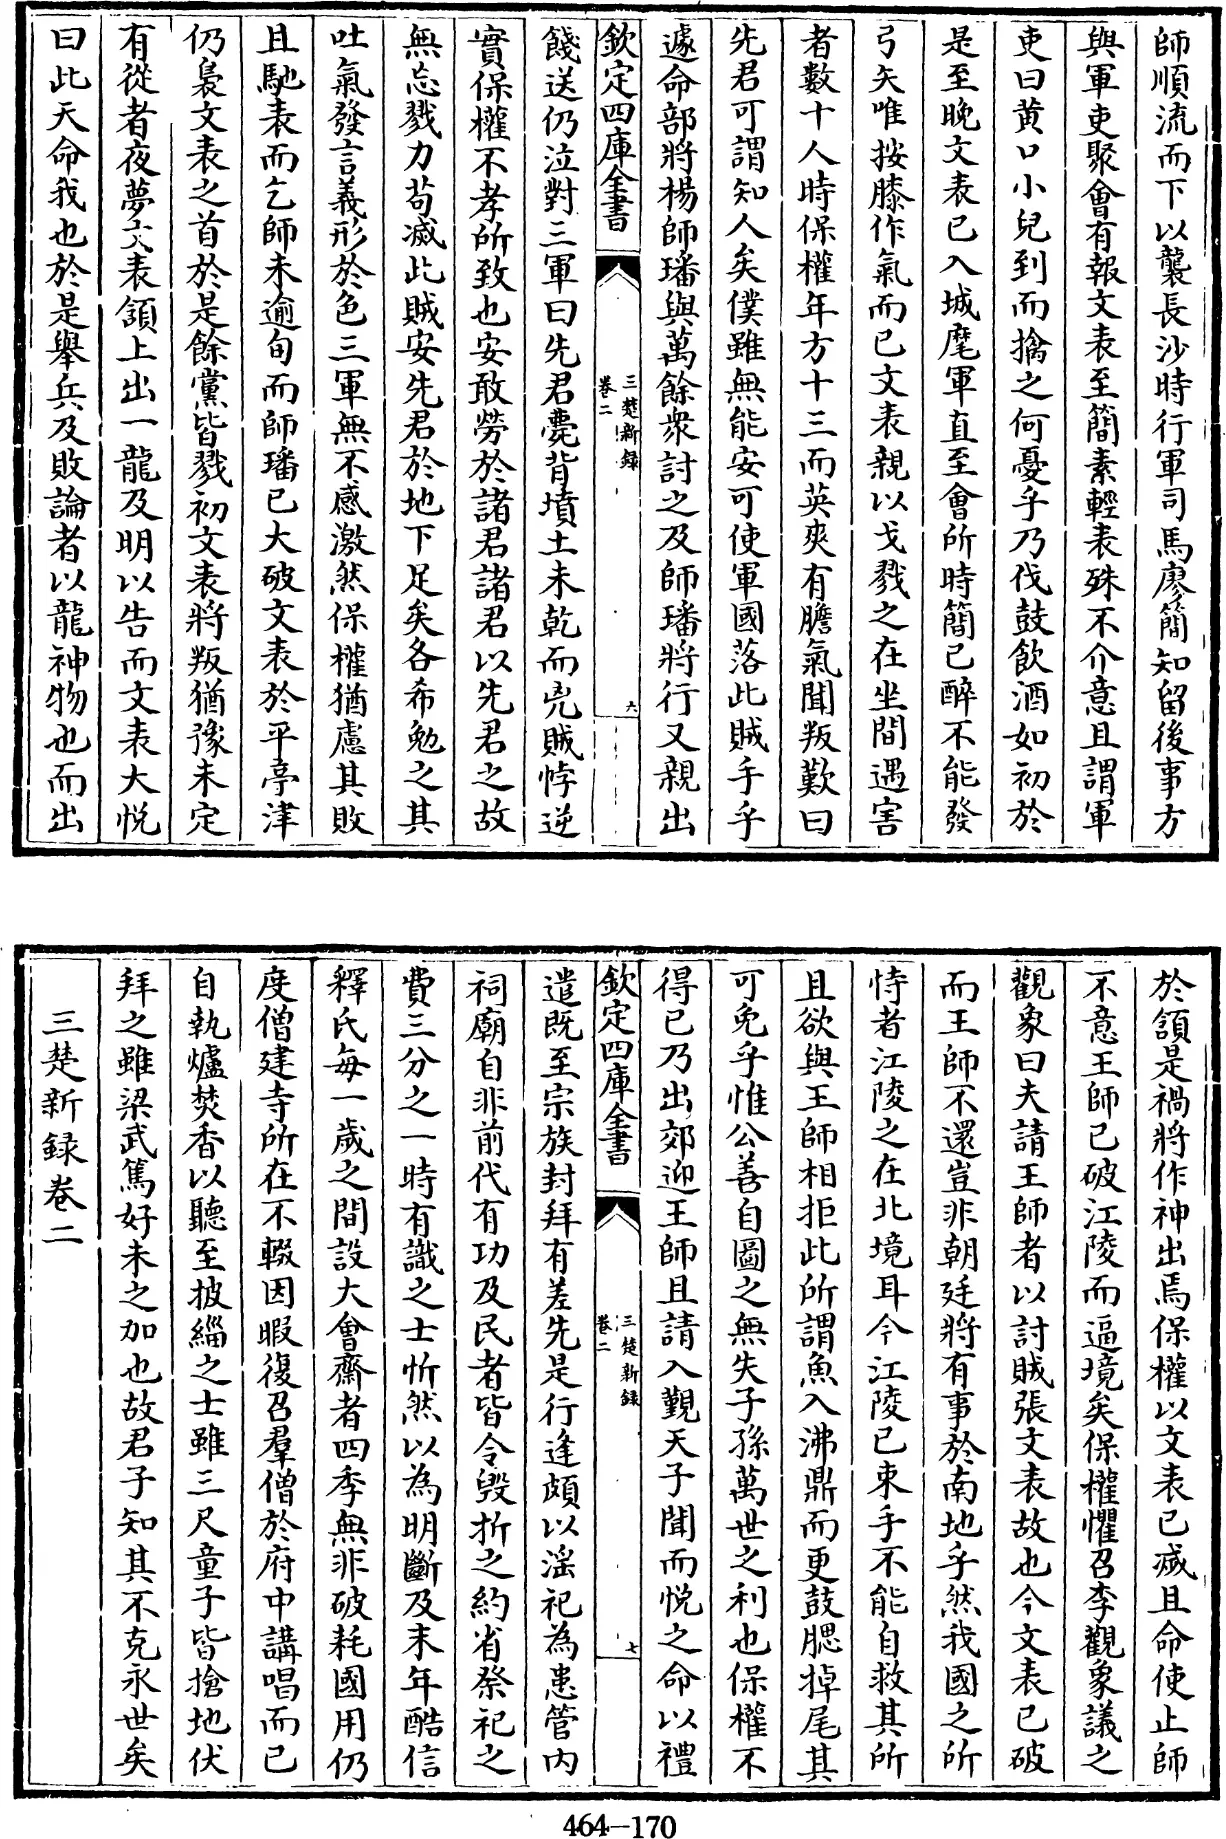 師順流而下以襲長沙時行軍司馬廖簡知留後事方
與軍吏聚會有報文表至簡素輕表殊不介意且謂軍
吏曰黄口小兒到而擒之何憂乎乃伐鼓飲酒如初於
是至晚文表已入城麾軍直至會所時簡已醉不能發
弓矢唯按膝作氣而已文表親以戈戮之在坐間遇害
者數十人時保權年方十三而英爽有膽氣聞叛歎曰
先君可謂知人矣僕雖無能安可使軍國落此賊手乎
遽命部將楊師璠與萬餘衆討之及師璠將行又親出
欽定四庫全書
三楚新録
卷二
六
餞送仍泣對三軍曰先君薨背墳土未乾而兇賊悖逆
實保權不孝所致也安敢勞於諸君諸君以先君之故
無忘戮力苟滅此賊安先君於地下足矣各希勉之其
吐氣發言義形於色三軍無不感激然保權猶慮其敗
且馳表而乞師未逾旬而師璠已大破文表於平亭津
仍裊文表之首於是餘黨皆戮初文表將叛猶豫未定
有從者夜夢文表頷上出一龍及明以告而文表大悦
曰此天命我也於是舉兵及敗論者以龍神物也而出
於頷是禍將作神出焉保權以文表已滅且命使止師
不意王師已破江陵而逼境矣保權懼召李觀象議之
觀象曰夫請王師者以討賊張文表故也今文表已破
而王師不還豈非朝廷將有事於南地乎然我國之所
恃者江陵之在北境耳今江陵已束手不能自救其所
且欲與王師相拒此所謂魚入沸鼎而更鼓腮掉尾其
可免乎惟公善自圖之無失子孫萬世之利也保權不
得已乃出郊迎王師且請入覲天子聞而悦之命以禮
欽定四庫全書
三楚新録
卷二
七
遣既至宗族封拜有差先是行逢頗以滛祀為患管内
祠廟自非前代有功及民者皆令毁折之約省祭祀之
費三分之一時有識之士忻然以為明斷及末年酷信
釋氏每一歲之間設大會齋者四季無非破耗國用仍
度僧建寺所在不輟因暇復召羣僧於府中講唱而已
自執爐焚香以聽至披緇之士雖三尺童子皆搶地伏
拜之雖梁武篤好未之加也故君子知其不克永世矣
三楚新録卷二
464—170